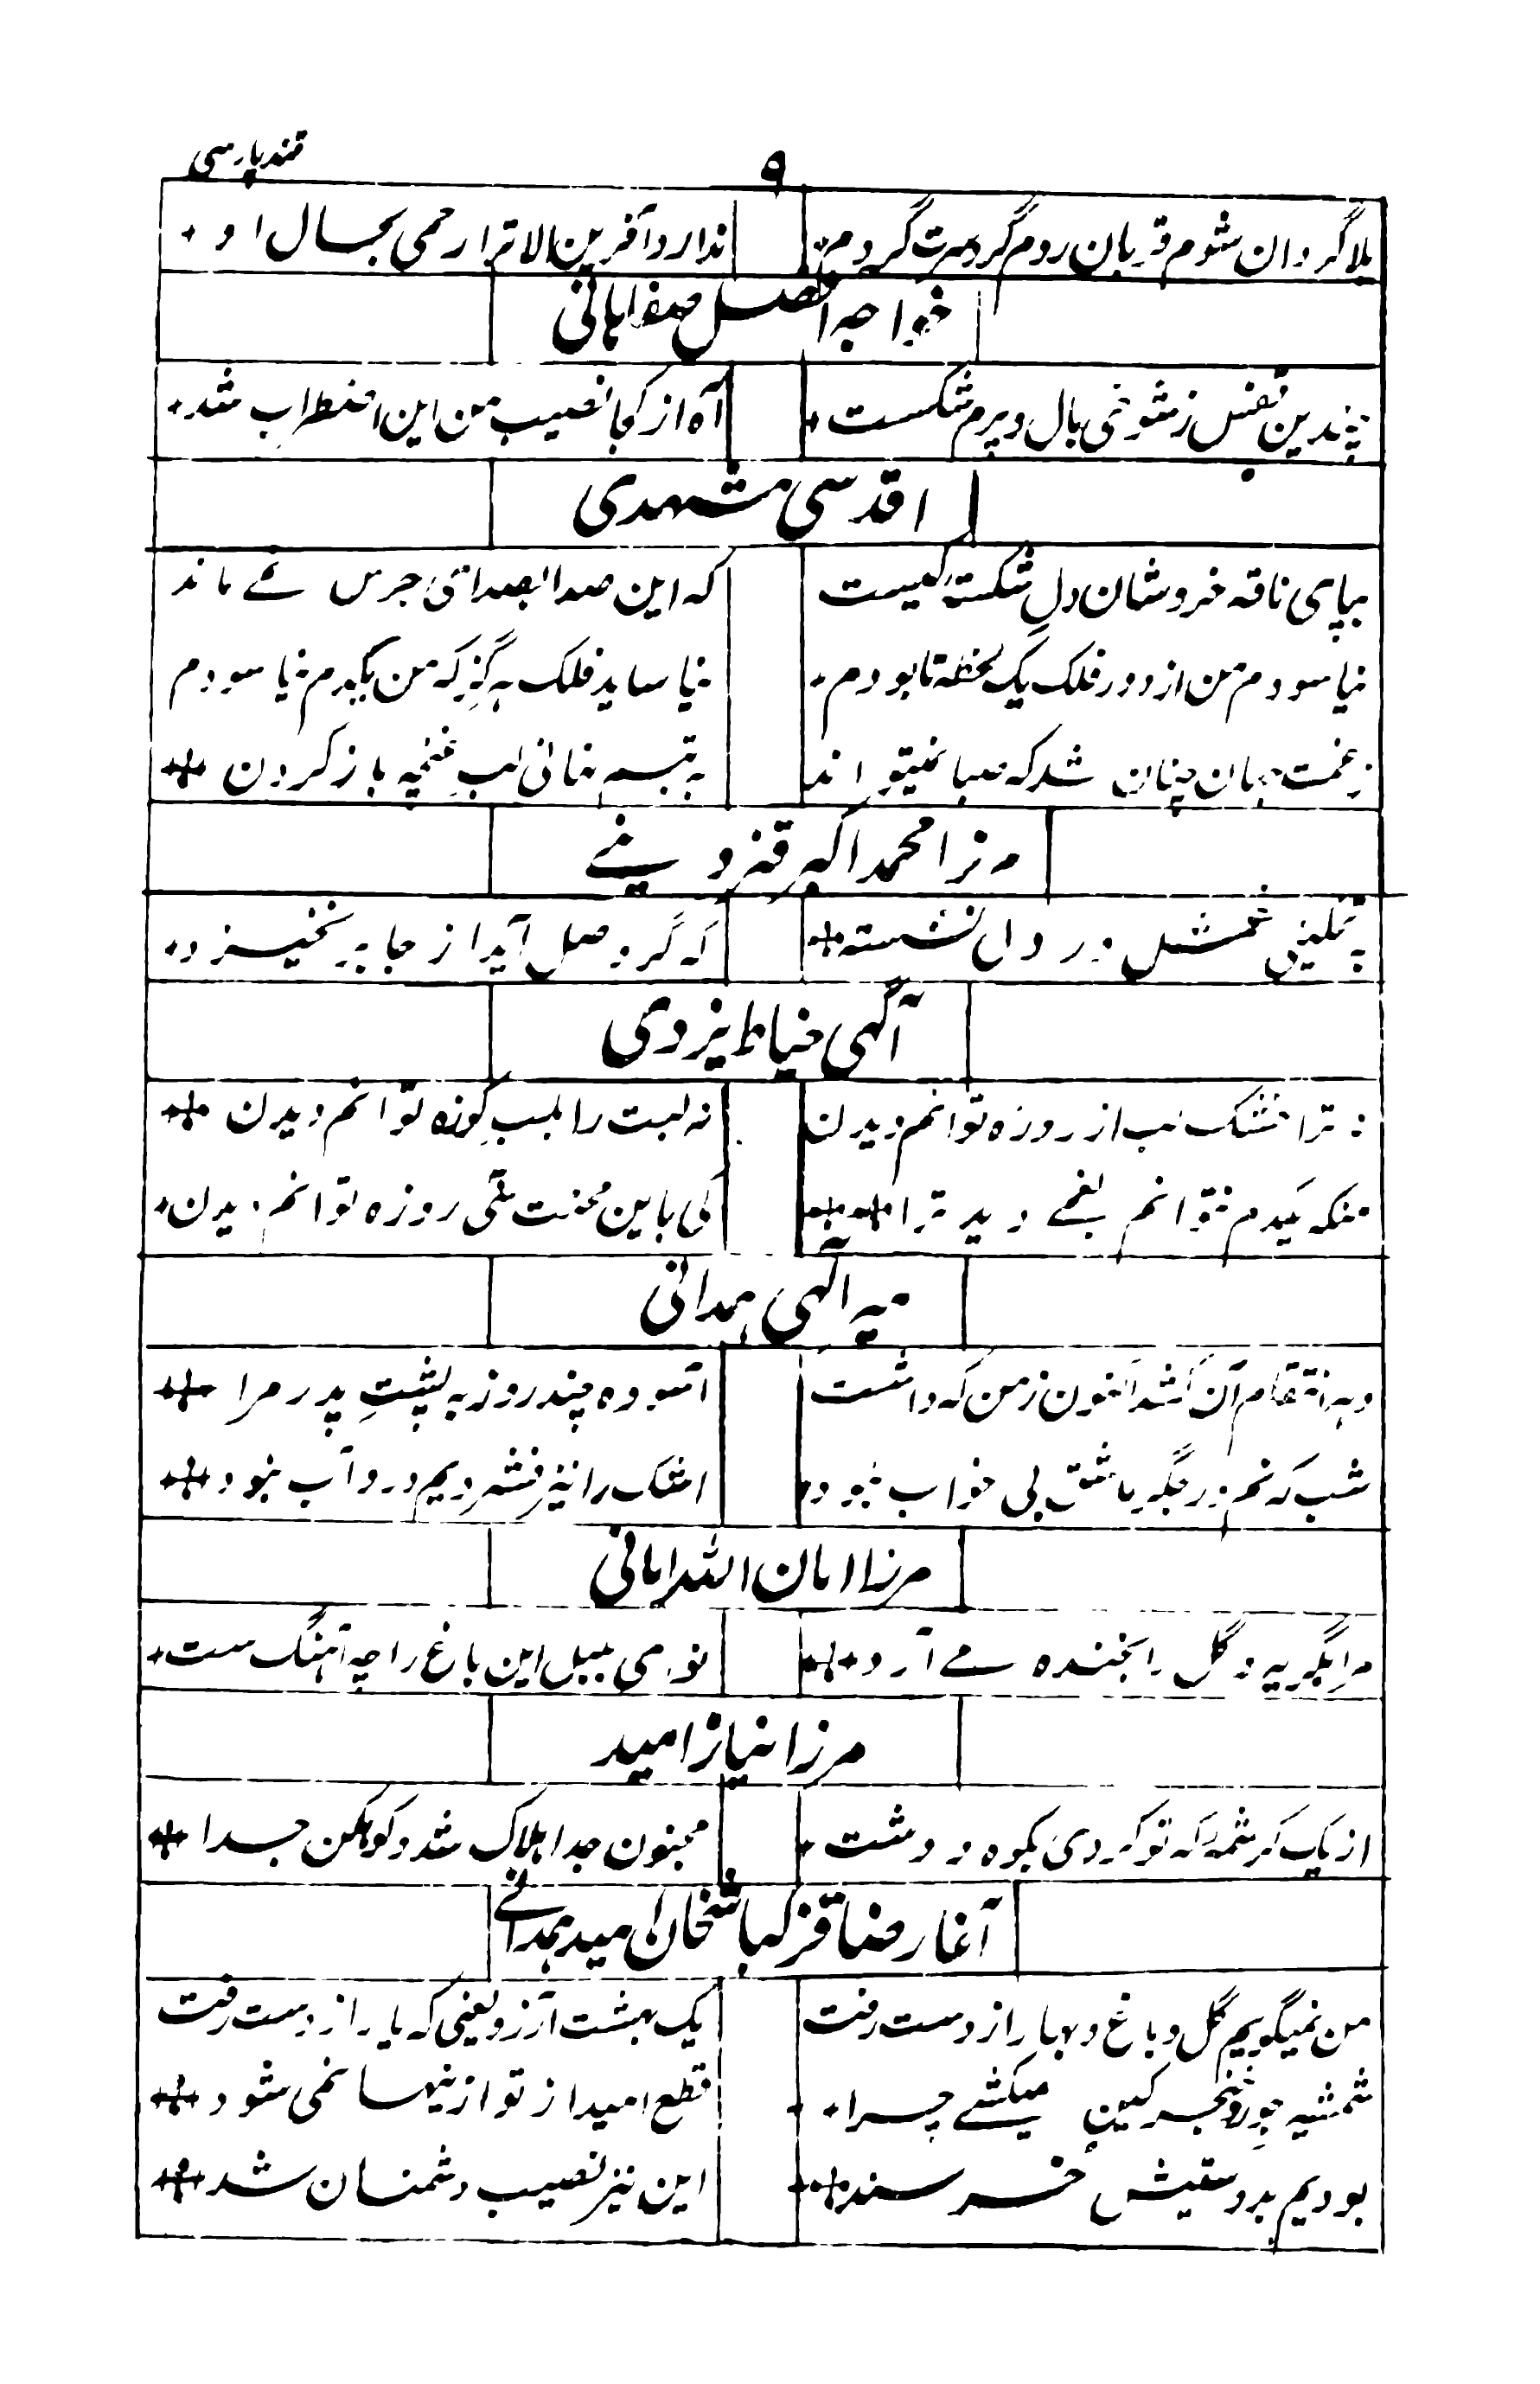 ۹ قند پارسی
بلاگردان شوم قربان روم گرد سرت گردم ندارد آفرین الا ترا رحمی بحال او
خواجه افضل صفاهانی
چندین قفس ز شوخی بال و پرم شکست آه از کجا نصیب من این اضطراب شد
اقدسی مشهدی
بپای ناقه خروشان دلِ شکستهٔ کیست که این صدا بصدائی جرس نمے ماند
نیاسودم من از دور فلک یک لحظه تا بودم نیاساید فلک هرگز که من یکدم نیاسودم
ز غمت جهان چنان شد که صبا نمیتواند به تبسم نهانی لبِ غنچه باز کردن
مرزا محمد اکبر قزوینے
به تمکینی غمش در دل نشسته که گر وصل آید از جا برنخیزد
آگهی خیاط یزدی
نه ترا خشک لب از روزه توانم دیدن نه لبت را بلبِ کوزه توانم دیدن
منکه یکدم نتوانم بغمے دید ترا کی باین محنت سی روزه توانم دیدن
میر الهی همدانی
دهر انتقام آن کشد اکنون ز من که داشت آسوده چند روز به پشتِ پدر مرا
شب که نم در جگر ما شقِ بی خواب نبود اشک را نیز فشردیم درو آب نبود
مرزا امان الله امانی
مرا بگریه و گل را بخنده مے آرد نوای بلبل این باغ را چه آهنگ ست
مرزا نیاز امید
از یک کرشمهٔ که تو کردی بکوه و دشت مجنون جدا هلاک شد و کوهکن جدا
آغا رضا قزلباشخان امید همدانے
من نمیگویم گل و باغ و بهار از دست رفت یک بهشت آرزو یعنی که یار از دست رفت
شمشیر جور و خنجر کین میکشے چرا قطع امید از تو ازینها نمی شود
بودیم بدوستیش خرسند این نیز نصیب دشمنان شد